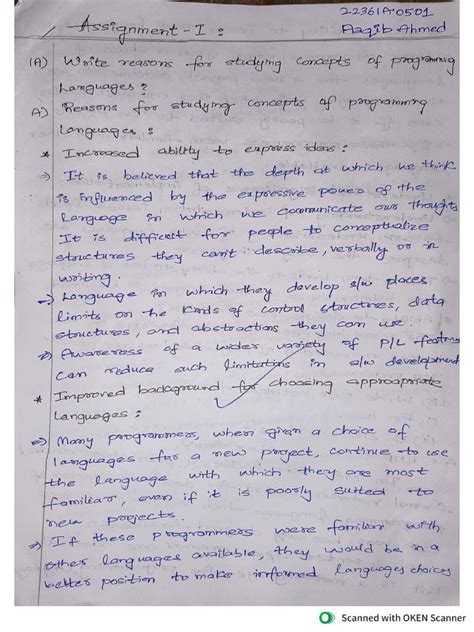 22361A0501
Assignment - I :
Aaqib Ahmed
1A) Write reasons for studying concepts of programming
Languages ?
A) Reasons for studying concepts of programming
Languages :
* Increased ability to express ideas :
⇒ It is believed that the depth at which we think
is influenced by the expressive power of the
Language in which we communicate our thoughts
It is difficult for people to conceptualize
structures they can't describe, verbally or in
writing.
⇒ Language in which they develop s/w places
limits on the kinds of control structures, data
structures, and abstractions they can use.
⇒ Awareness of a wider variety of P/L features
can reduce such limitations in s/w development
* Improved background for choosing appropriate
Languages :
⇒ Many programmers, when given a choice of
languages for a new project, continue to use
the language with which they are most
familiar, even if it is poorly suited to
new projects.
⇒ If these programmers were familiar with
other languages available, they would be in a
better position to make informed languages choices
Scanned with OKEN Scanner